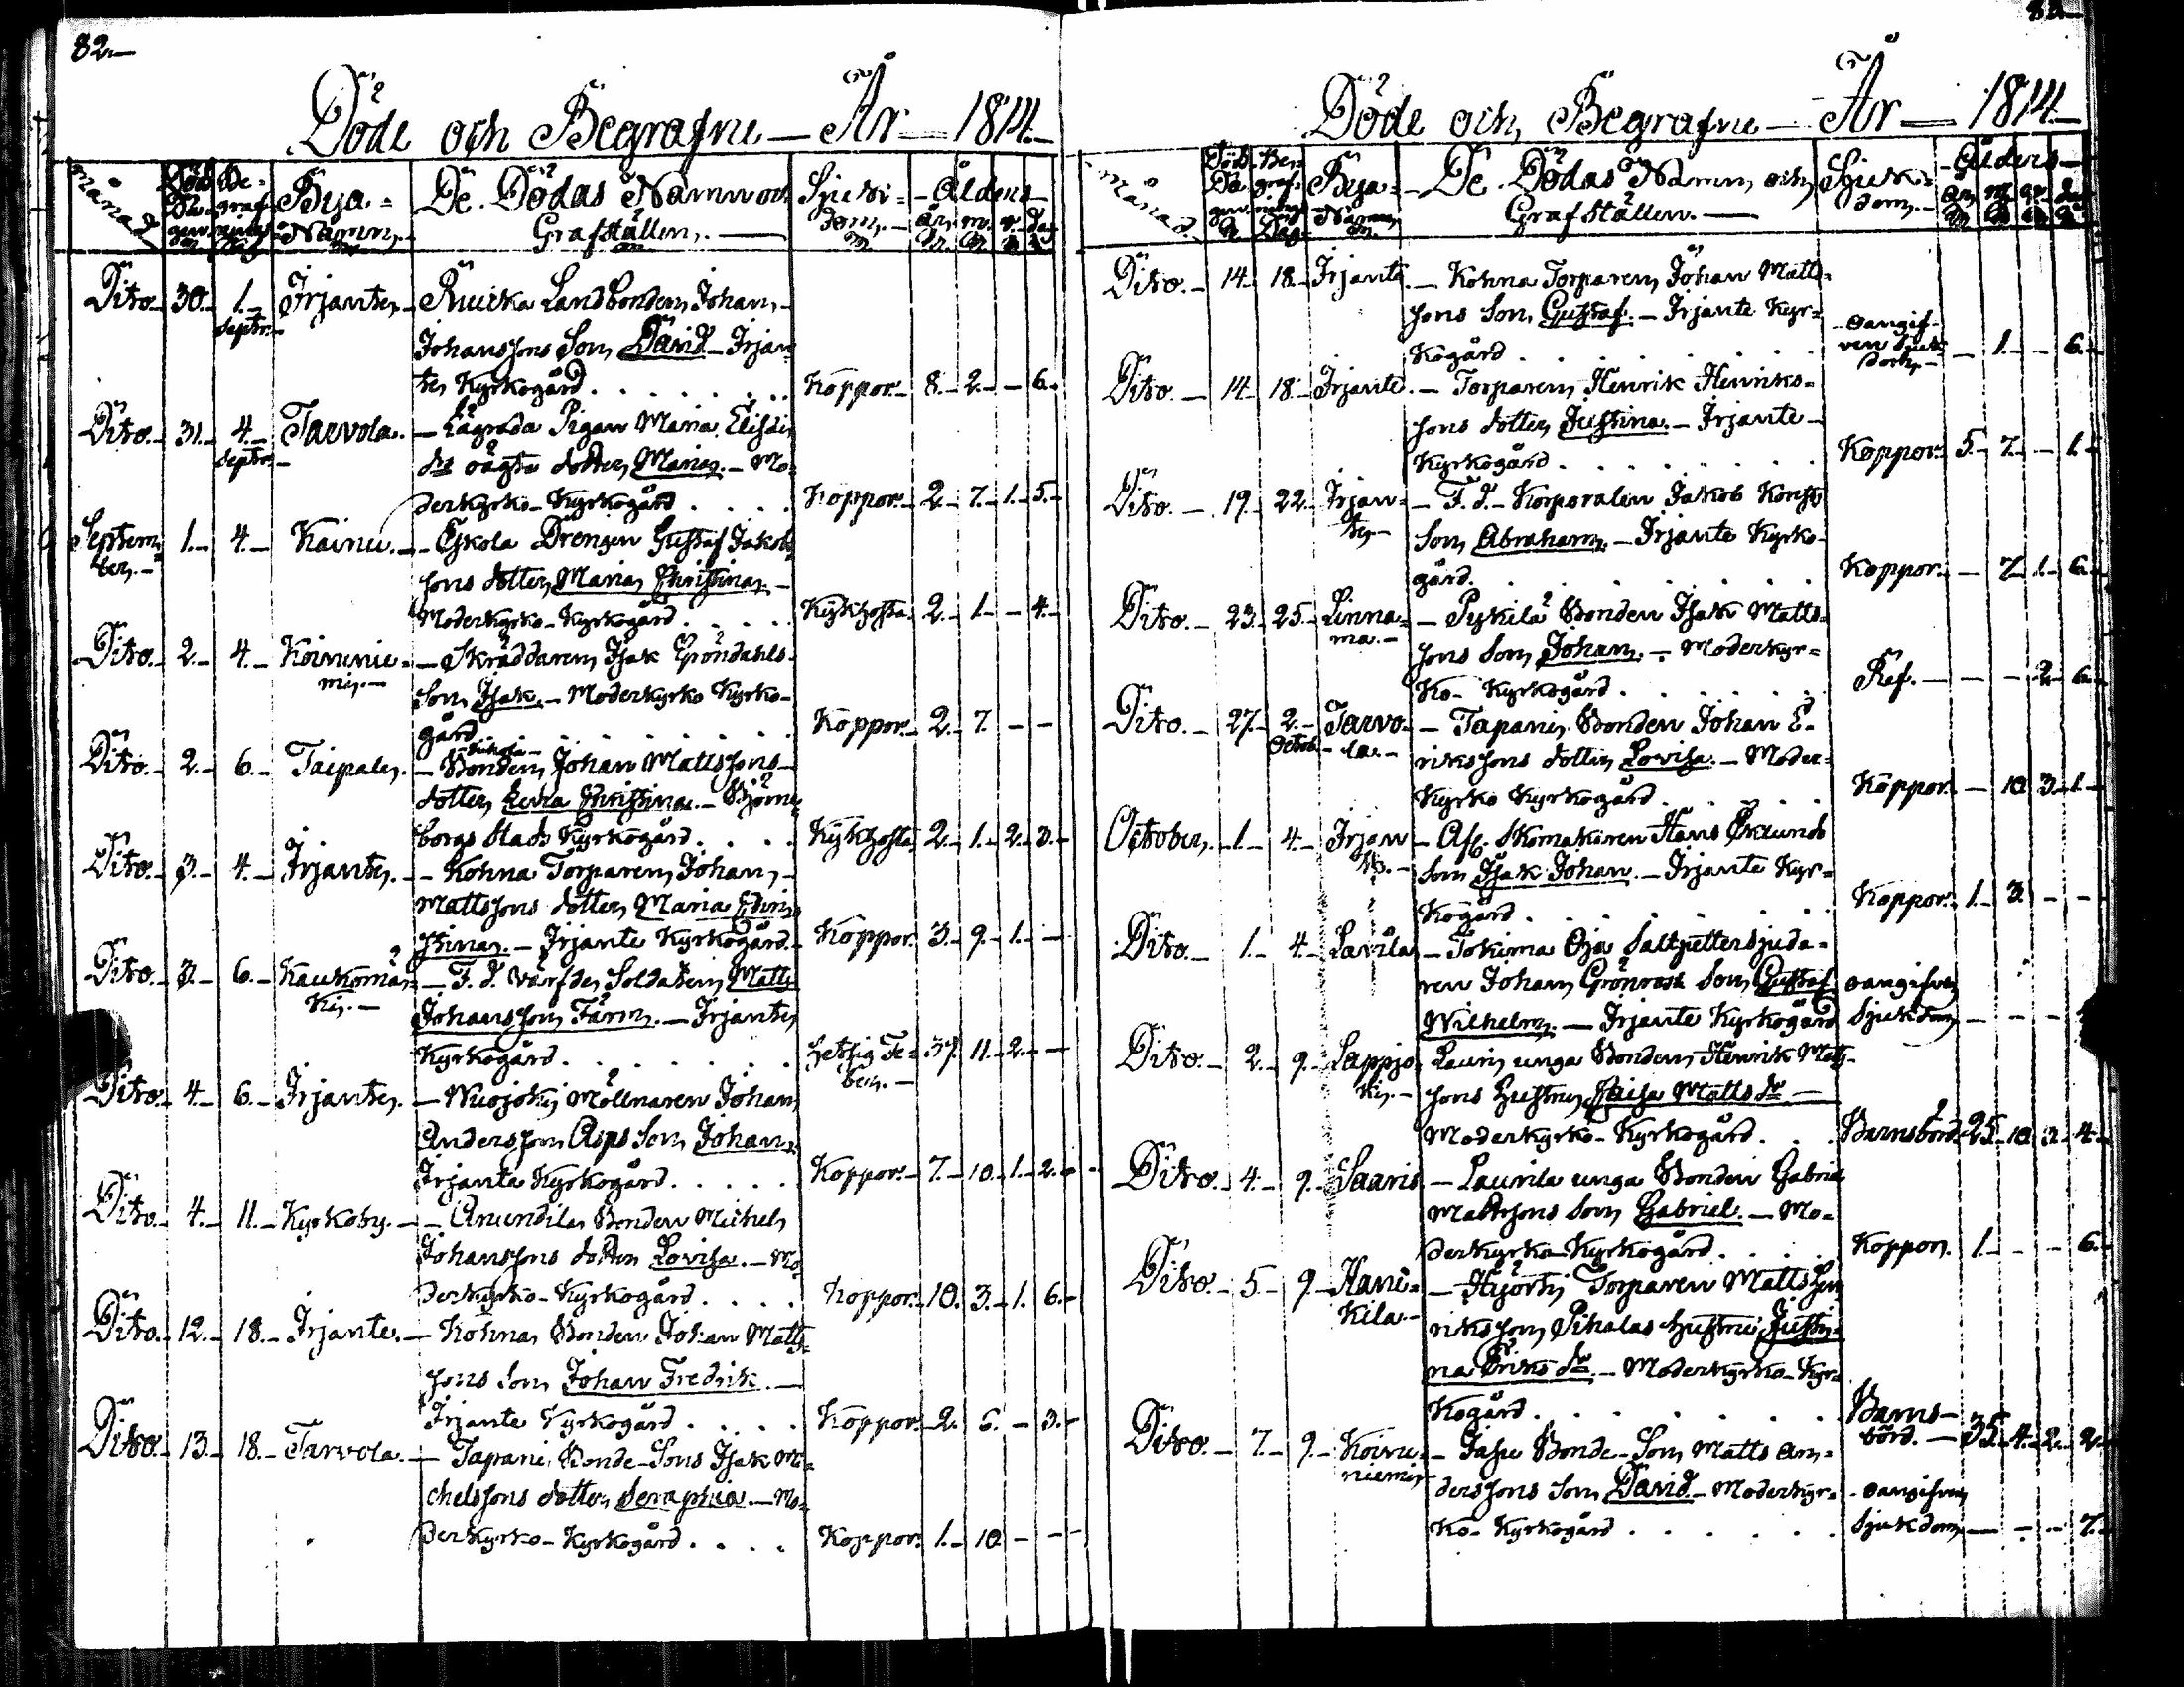 82.—
Döde och Begrafne — År — 1814.—
Månad
Död Dagen
Begrafnings Dag
Bya-Namn.
De Dödas Namn och Grafställen.—
Sjukdom.—
Ålder—
år. m. v. dag
Dito. 30. 1. Septr. Irjante. — Ruuska Landbonden Johan
Johanssons Son David. — Irjan-
te Kyrkogård . . . . Koppor. 8. 2. — 6.
Dito. 31. 4. Septr. Tarvola. — Lägrada Pigan Maria Elisdr
dr oägta dotter Maria. — Mo-
derkyrko- Kyrkogård . . . . Koppor. 2. 7. 1. 5.
September. 1. 4. Kainu. — Eskola Drengen Gustaf Jakobs
sons dotter Maria Christina. —
Moderkyrko- Kyrkogård . . . . Kikhosta. 2. 1. — 4.
Dito. 2. 4. Koivunie-
mi. — Skräddaren Isak Gröndahls
Son Isak. — Moderkyrko Kyrko-
gård . . . . Koppor. 2. 7. — —
Dito. 2. 6. Taipale. — Bonden Johan Mattssons
dotter Christina. — Björne-
borgs Stads Kyrkogård . . . . Kikhosta. 2. 1. 2. 3.
Dito. 3. 4. Irjante. — Kohna Torparen Johan
Mattssons dotter Maria Chri-
stina. — Irjante Kyrkogård. Koppor. 3. 9. 1. —
Dito. 3. 6. Kaukomä-
ki. — F. d. Värfde Soldaten Matts
Johansson Färm. — Irjante
Kyrkogård . . . . Hetsig Fe-
ber. — 37. 11. 2. —
Dito. 4. 6. Irjante. — Nuojoki Möllnaren Johan
Andersson Asps Son Johan.
Irjante Kyrkogård . . . . Koppor. 7. 10. 1. 2.
Dito. 4. 11. Kyrkoby. — Anundila Bonden Michel
Johanssons dotter Lovisa. — Mo-
derkyrko- Kyrkogård . . . . Koppor. 10. 3. 1. 6.
Dito. 12. 18. Irjante. — Kohna Bonden Johan Matts-
sons Son Johan Fredrik. —
Irjante Kyrkogård . . . . Koppor. 2. 5. — 3.
Dito. 13. 18. Tarvola. — Tapani Bonde-Sons Isak Mi-
chelssons dotter Seraphia. — Mo-
derkyrko- Kyrkogård . . . . Koppor. 1. 10. — —
82.—
Döde och Begrafne — År — 1814.—
Månad.
Död Dagen
Begrafnings Dag
Bya-Namn.
De Dödas Namn och Grafställen.—
Sjukdom.—
Ålder—
Dito. 14. 18. Irjante. — Kohna Torparen Johan Matts-
sons Son Gustaf. — Irjante Kyr-
kogård . . . . oangif-
ven Sjuk-
dom. — — 1. — 6.
Dito. 14. 18. Irjante. — Torparen Henrik Henriks-
sons dotter Justina. — Irjante
Kyrkogård . . . . Koppor. 5. 7. — 1.
Dito. 19. 22. Irjan-
te. — F. d. Korporalen Jakob Konst
Son Abraham. — Irjante Kyrko-
gård. . . . . Koppor. — 7. 1. 6.
Dito. 23. 25. Linna-
ma. — Pykilä Bonden Isak Matts-
sons Son Johan. — Moderkyr-
ko- Kyrkogård . . . . Ref. — — — 2. 6.
Dito. 27. 2. Octob. Tarvo-
la. — Tapani Bonden Johan E-
rikssons dotter Lovisa. — Moder-
Kyrko Kyrkogård . . . . Koppor. — 10. 3. 1.
October. 1. 4. Irjan-
te. — Afl. Skomakaren Hans
Son Isak Johan. — Irjante Kyr-
kogård . . . . Koppor. 1. 3. — —
Dito. 1. 4. Lavila — Tokima Oja Saltpettersjuda-
ren Johan Grönroos Son Gustaf
Wilhelm. — Irjante Kyrkogård oangifven
Sjukdom — — —
Dito. 2. 9. Lappjo-
ki. — Lauri unga Bonden Henrik Matts-
sons Hustru Caisa Matts dr —
Moderkyrko- Kyrkogård . . . Barnsbörd. 25. 10. 3. 4.
Dito. 4. 9. Saaris. — Laurila unga Bonden Gabriel
Mattssons Son Gabriel. — Mo-
derkyrko Kyrkogård . . . . Koppor. 1. — — 6.
Dito. 5. 9. Hani-
kila. — Hjorti Torparen Matts Hen-
riksson Pihalas Hustru Justi-
na Eriks dr. — Moderkyrko- Kyr-
kogård . . . . Barns-
börd. — 35. 4. 2. 2.
Dito. 7. 9. Koivu-
niemi. — Jahu Bonde- Son Matts An-
derssons Son David. — Moderkyr-
ko- Kyrkogård . . . . oangifven
Sjukdom — — — 7.